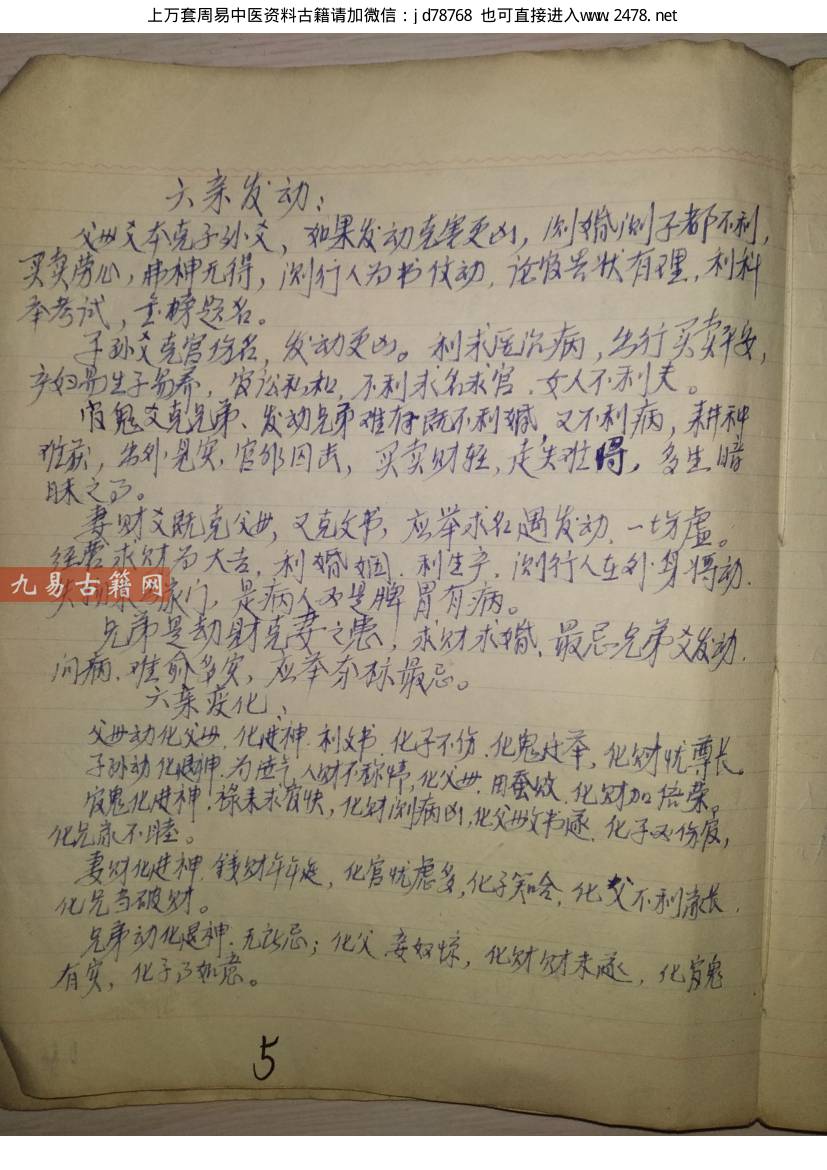 上万套周易中医资料古籍请加微信：jd78768 也可直接进入www.2478.net
六亲发动：
父母爻本克子孙爻，如果发动克害更凶，测婚测子都不利，
买卖劳心，神无得，测行人为书仗动，论官告状有理，利科
举考试，金榜题名。
子孙爻克官伤名，发动更凶。利求医治病，出行买卖平安，
产妇易生子易养，官讼私和，不利求名求官，女人不利夫。
官鬼爻克兄弟、发动兄弟难存既不利婚，又不利病，耕种
难获，出外见灾，官邪囚击，买卖财轻，走失难得，多生暗
昧之了。
妻财爻既克父母，又克文书，应举求名遇发动，一切虚。
经营求财为大吉，利婚姻，利生产，测行人在外身将动，
家门，是病人必是脾胃有病。
九易古籍网
兄弟是劫财克妻之患，求财求婚，最忌兄弟爻发动，
问病，难愈多灾，应举夺标最忌。
六亲变化：
父母动化父母，化进神，利文书，化子不伤，化鬼迁举，化财忧尊长。
子孙动化退神，为泄气，人财不称情，化父母，田蚕败，化财加倍荣。
官鬼化进神，禄来求官快，化财测病凶，化父母文书遂，化子必伤官，
化兄家不睦。
妻财化进神，钱财年年旺，化官忧虑多，化子知合，化父不利家长，
化兄当破财。
兄弟动化退神，无所忌；化父，妾奴惊，化财财未遂，化官鬼
有灾，化子了如意。
5